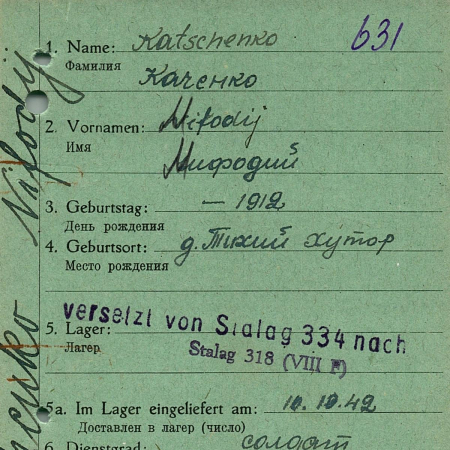 631
1. Name: Katschenko
Фамилия
Каченко
2. Vornamen: Mifodij
Имя
Мифодий
3. Geburtstag: — 1912
День рождения
4. Geburtsort: д. Тихий хутор
Место рождения
versetzt von Stalag 334 nach
5. Lager:
Лагерь
Stalag 318 (VIII F)
5a. Im Lager eingeliefert am: 10.10.42
Доставлен в лагерь (число)
6. Dienstgrad: солдат